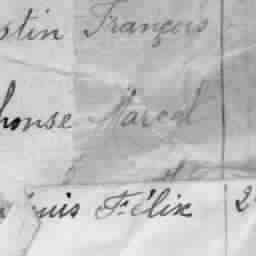 stin François
honse Marcel
uis Félix 2